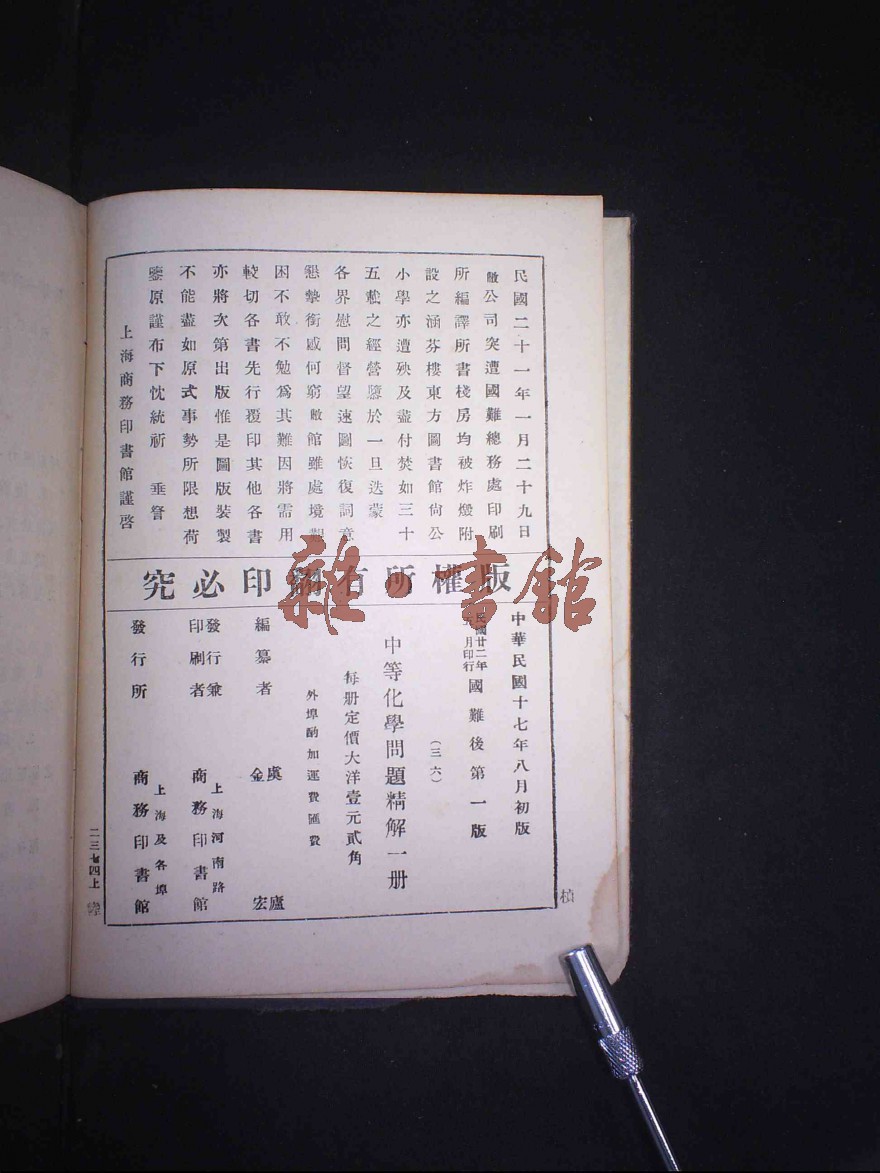 民國二十一年一月二十九日
敝公司突遭國難總務處印刷
所編譯所書棧房均被炸燬附
設之涵芬樓東方圖書館尙公
小學亦遭殃及盡付焚如三十
五載之經營隳於一旦迭蒙
各界慰問督望速圖恢復詞意
懇摯銜感何窮敝館雖處境艱
困不敢不勉爲其難因將需用
較切各書先行覆印其他各書
亦將次第出版惟是圖版裝製
不能盡如原式事勢所限想荷
鑒原謹布下忱統祈 垂詧
上海商務印書館謹啓
版權所有翻印必究
中華民國十七年八月初版
民國廿二年
月印行
國難後第一版
(三六)
中等化學問題精解一册
每册定價大洋壹元貳角
外埠酌加運費匯費
編纂者 虞 盧
金 宏
發行兼
印刷者
上海河南路
商務印書館
發行所
上海及各埠
商務印書館
二三七四上
雜·書館